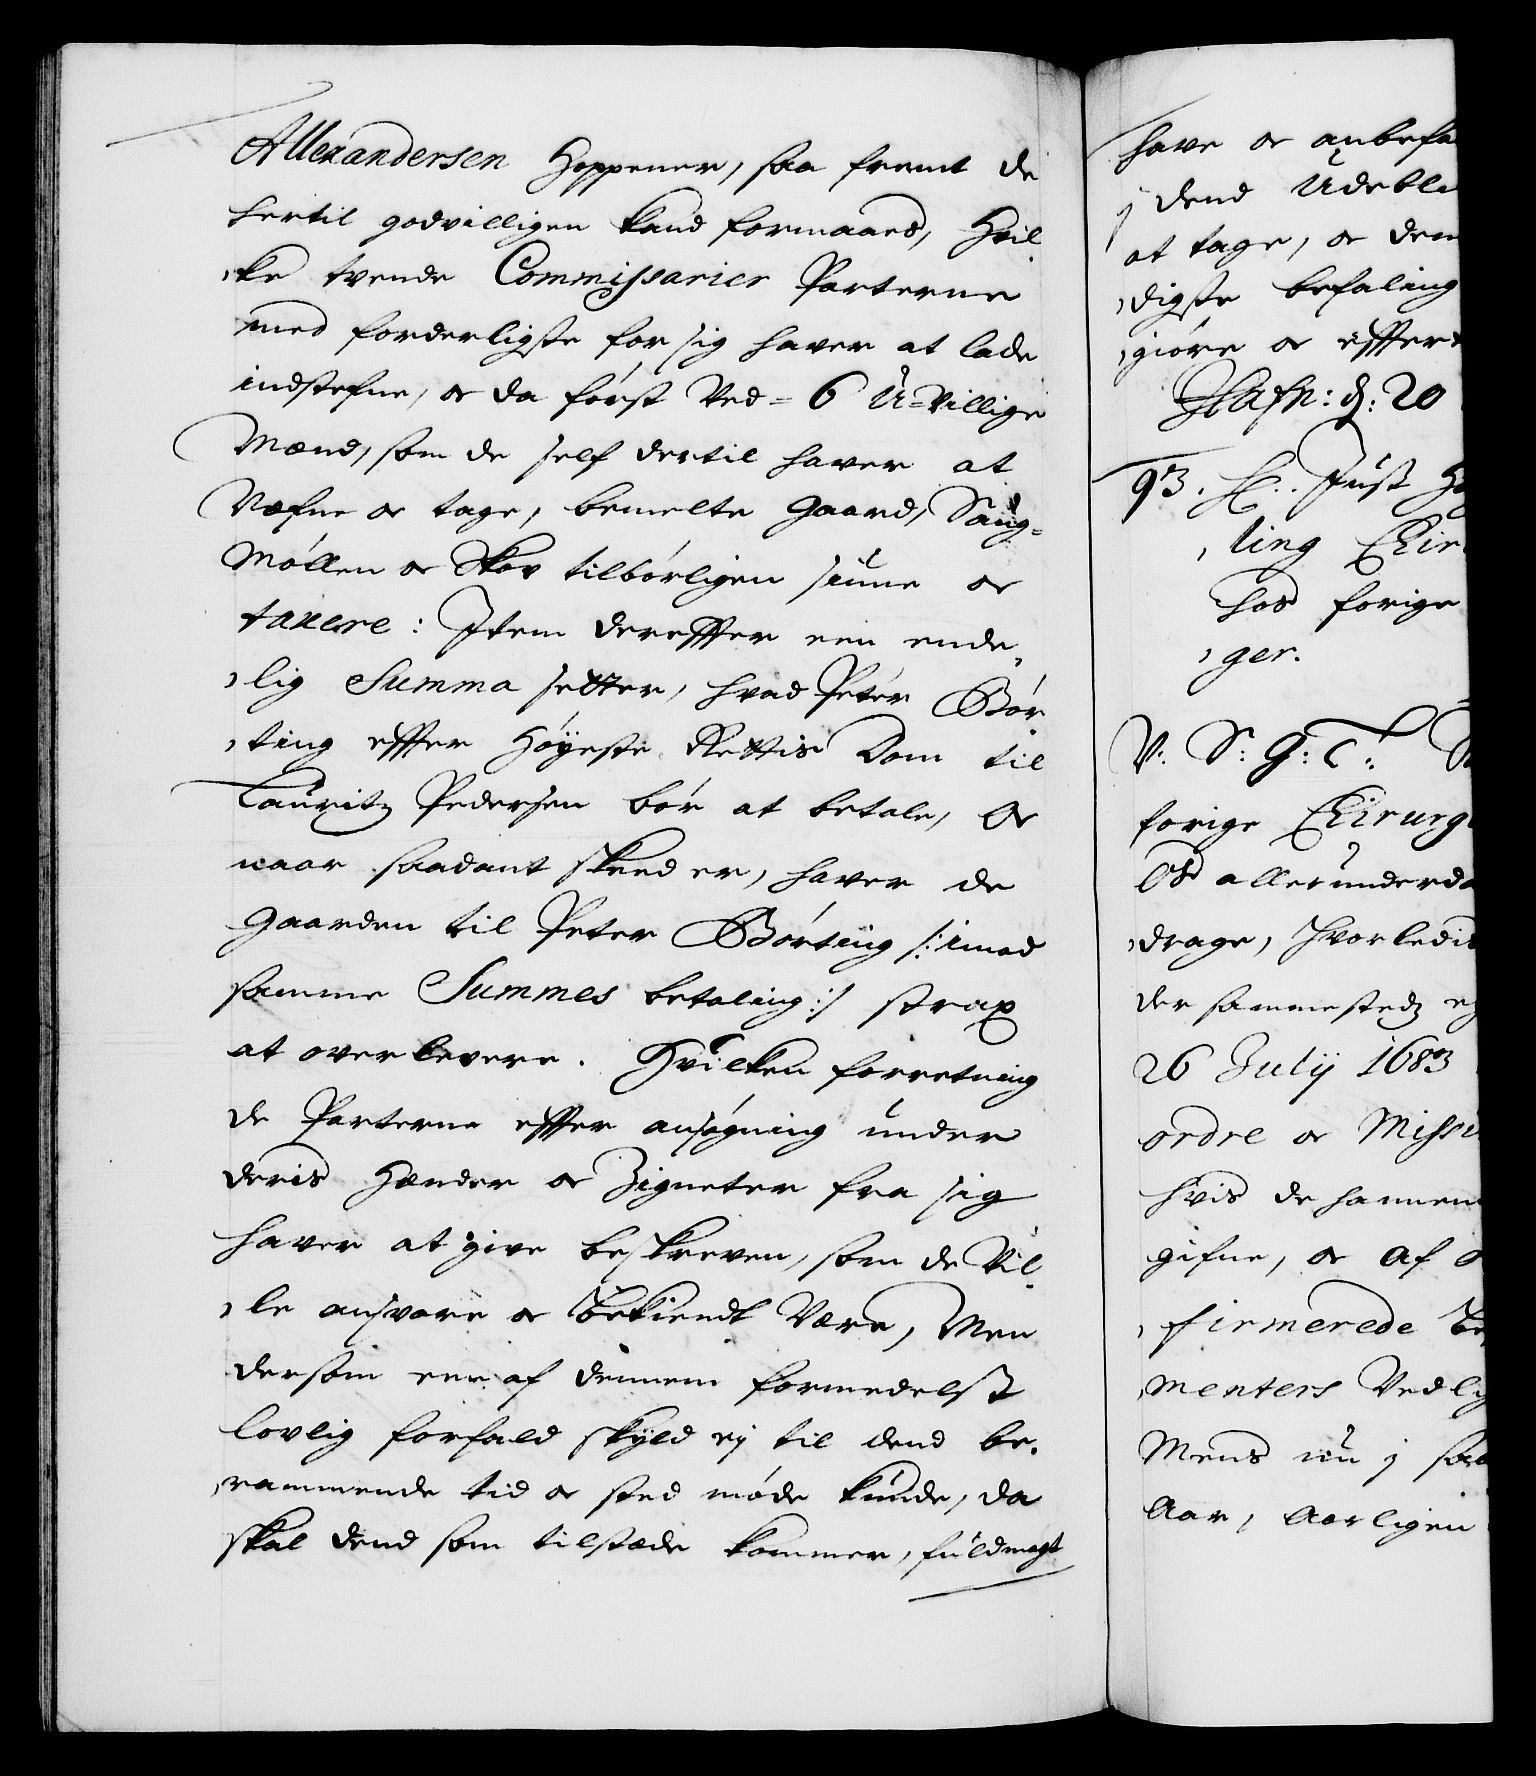 Allexandersen Hoppener, saa fremt de
hertil godvilligen kand formaaes, Hvil
ke tvende Commissarier Parterne
med forderligste for sig haver at lade
indstefne, oc da først Ved = 6 U=villige
Mænd, som de self dertil haver at
Næfne oc tage, bemelte Gaard, Saug=
Møllen oc Skov tilbørligen siune oc
taxere: Item dereffter een ende,
lig Summa setter, hvad Peter Bør
ting effter Høyeste Rettis Dom til
Lauritz Pedersen bør at betale, Oc
naar saadant skeed er, haver de
Gaarden til Peter Børting /: imod
samme Summes betaling :/ strax
at overlevere. Hvilken forretning
de Parterne effter ansøgning under
deris Hænder oc Zigneter fra sig
haver at give beskreven, som de Vil
le ansvare oc bekiendt Være, Men
dersom een af dennem formedelst
lovlig forfald skyld ej til dend be,
rammende tid oc sted møde kunde, da
skal dend som tilstæde kommer, fuldmagt
have oc anbefa
j dend Udeble
at tage, oc dem
digste befaling
giøre oc effter
Hafn: d: 20
93. H.. Just H
ling Chir
hos forige
ger.
V: S: G: T:
forige Chirurg
Os allerunderda
drage, hvorledis
der sammestedz
26 Julij 1683
ordre oc Missi
hvis de hannem
gifne, oc af
firmerede
menters Vedly
Mens nu j saa
Aar, Aarligen